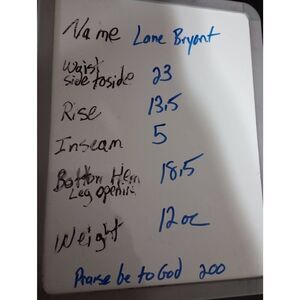 Name Lane Bryant
Waist
side to side 23
Rise 13.5
Inseam 5
Bottom Hem 18.5
Leg opening
Weight 12 oz
Praise be to God 200